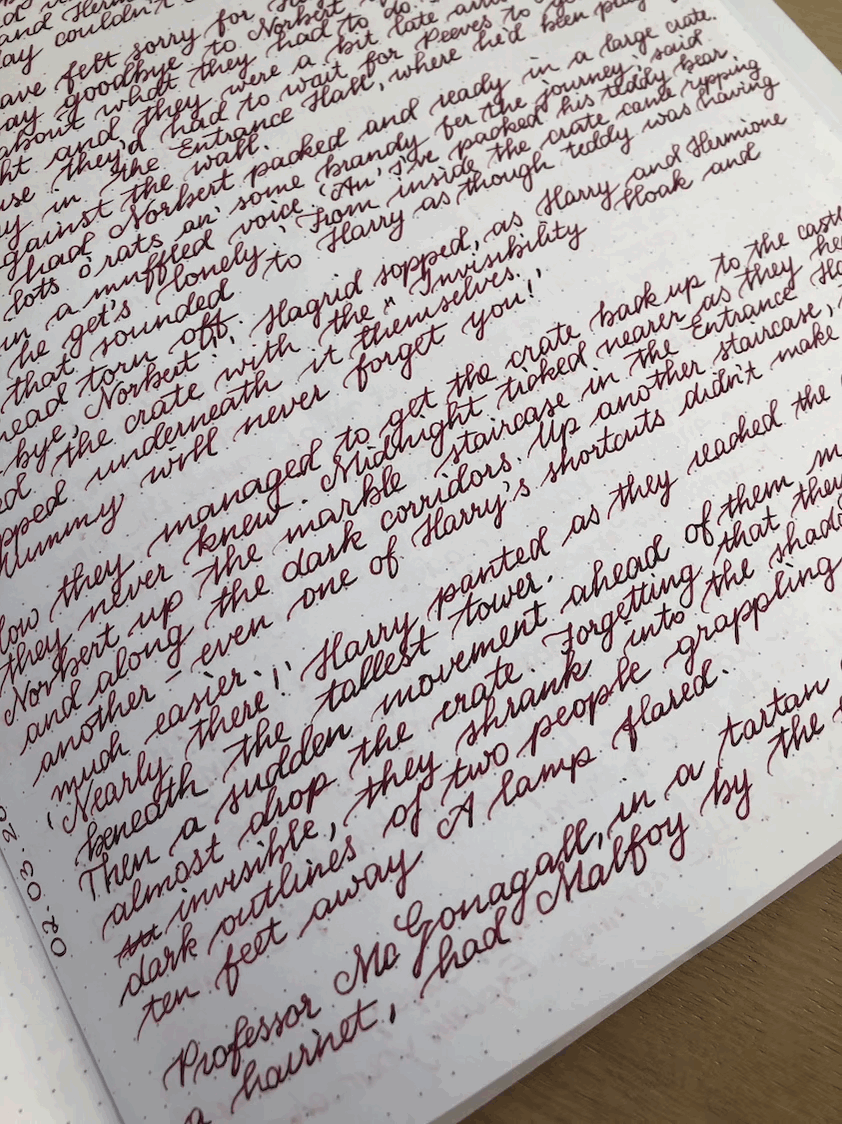 and Herm
day couldn't
ave felt sorry for
ay goodbye to Norbert
about what they had to do.
ht and they were a bit late
use they'd had to wait for Peeves to
y in the Entrance Hall, where he'd been play
gainst the wall.
had Norbert packed and ready in a large crate.
lots o'rats an' some brandy fer the journey', said
in a muffled voice. 'An' I've packed his teddy bear
he get's lonely.' From inside the crate came ripping
that sounded to Harry as though teddy was having
head torn off.
-bye, Norbert!', Hagrid sopped, as Harry and Hermione
ed the crate with the Invisibility Cloak and
pped underneath it themselves.
Mummy will never forget you!'
low they managed to get the crate back up to the castle
they never knew. Midnight ticked nearer as they he
Norbert up the marble staircase in the Entrance Ha
and along the dark corridors. Up another staircase,
another - even one of Harry's shortcuts didn't make
much easier.
'Nearly there!' Harry panted as they reached the
beneath the tallest tower.
Then a sudden movement ahead of them m
almost drop the crate. Forgetting that they
invisible, they shrank into the shado
dark outlines of two people grappling
ten feet away. A lamp flared.
Professor McGonagall, in a tartan
a hairnet, had Malfoy by the
02.03.20